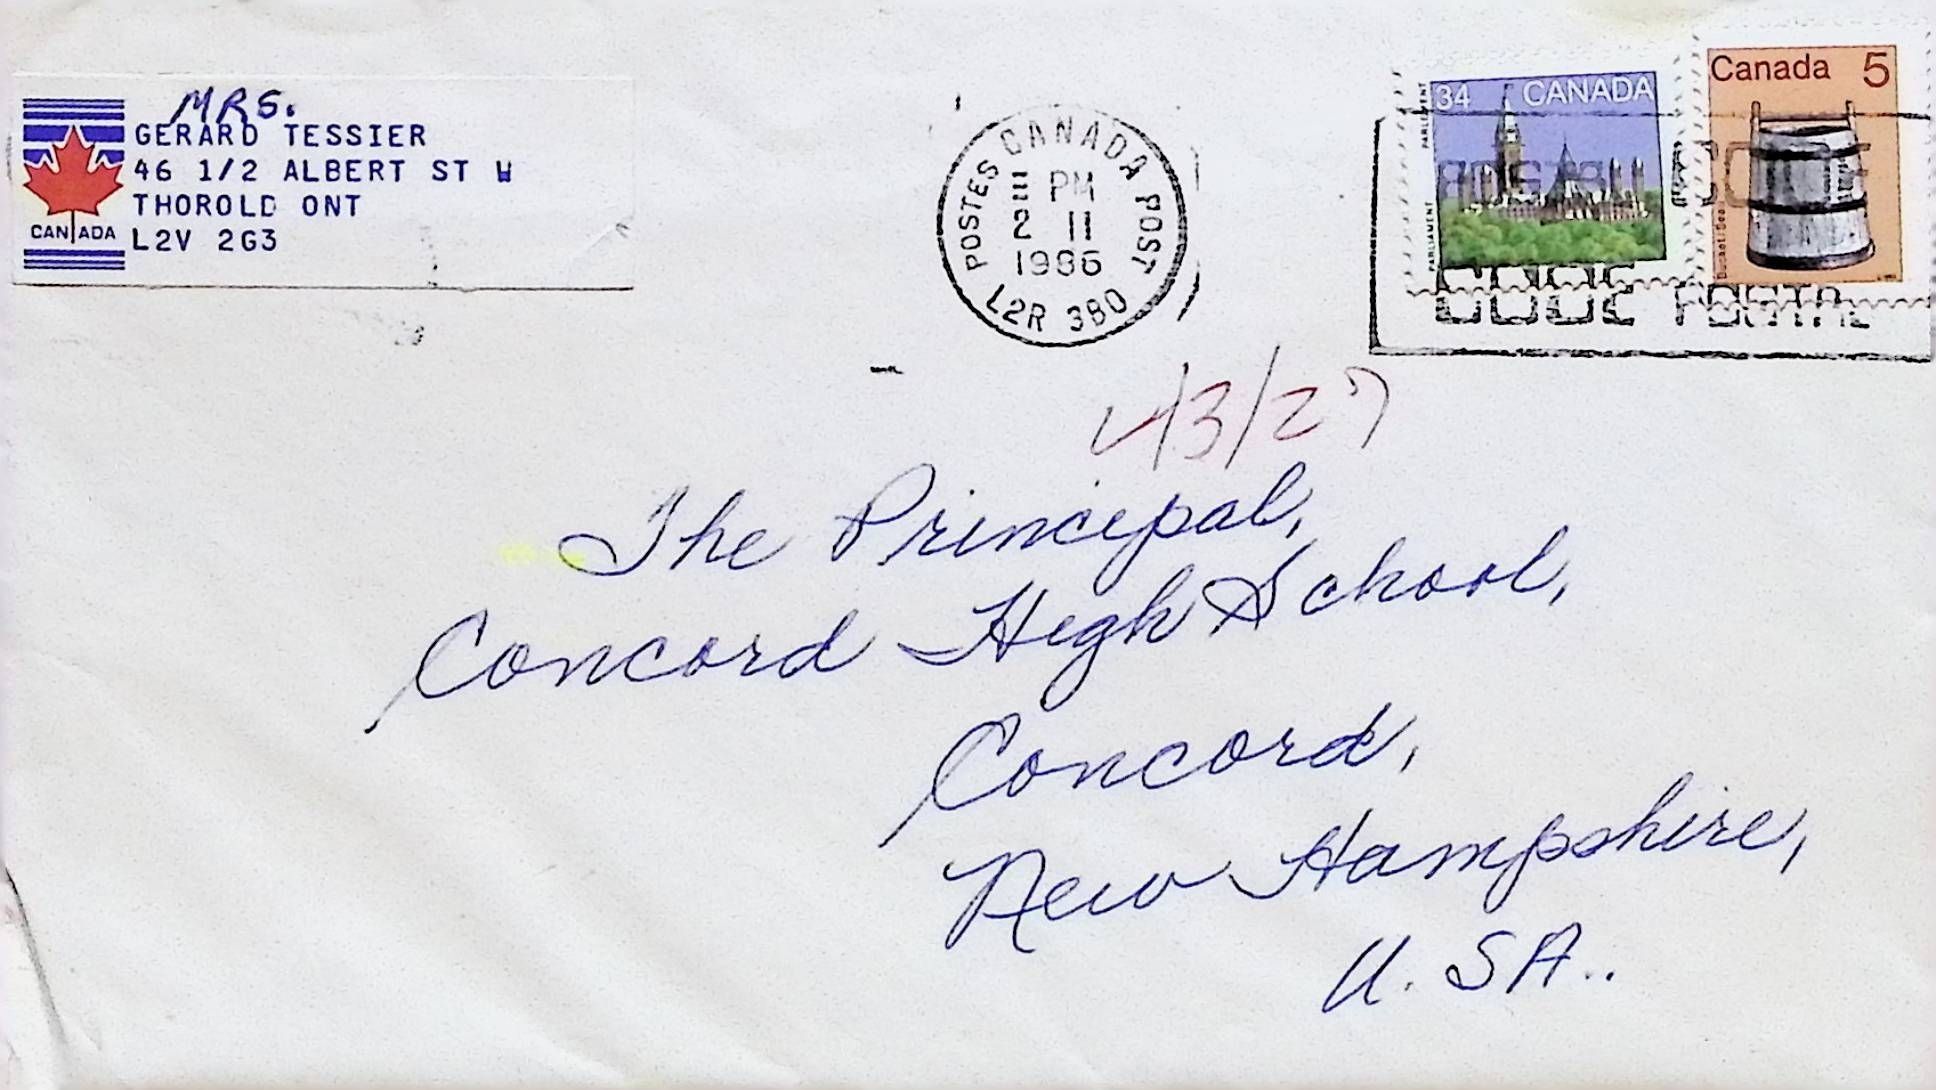 MRS.
GERARD TESSIER
46 1/2 ALBERT ST W
THOROLD ONT
L2V 2G3
CANADA
POSTES CANADA POST
PM
2 11
1986
L2R 3B0
34 CANADA
PARLIAMENT PARLEMENT
Canada 5
CODE POSTAL
4/3/27
The Principal,
Concord High School,
Concord,
New Hampshire,
U.SA..